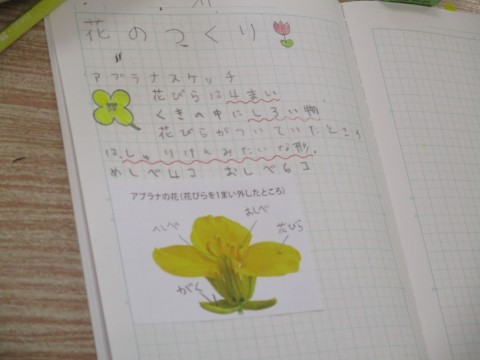 花のつくり
アブラナスケッチ
花びらは4まい
くきの中にしろい物
花びらがついていたところ
は、しゅりけんみたいな形。
めしべ4コ おしべ6コ
アブラナの花(花びらを1まい外したところ)
おしべ
めしべ
花びら
がく